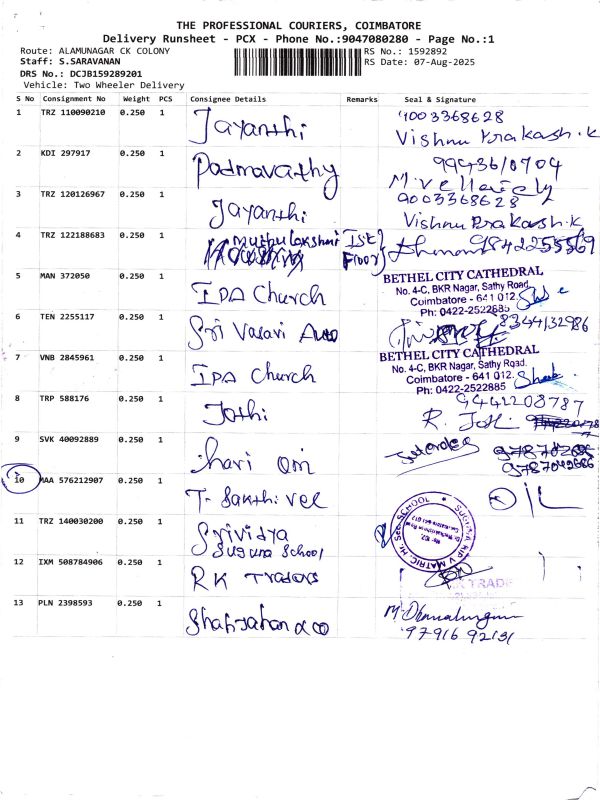 THE PROFESSIONAL COURIERS, COIMBATORE
Delivery Runsheet - PCX - Phone No.:9047080280 - Page No.:1
Route: ALAMUNAGAR CK COLONY
RS No.: 1592892
Staff: S.SARAVANAN
RS Date: 07-Aug-2025
DRS No.: DCJB159289201
Vehicle: Two Wheeler Delivery
S No Consignment No Weight PCS Consignee Details Remarks Seal & Signature
1 TRZ 110090210 0.250 1 Jayanthi 9003368628
Vishnu Prakash.K
2 KDI 297917 0.250 1 Padmavathy 9943610704
3 TRZ 120126967 0.250 1 Jayanthi 9003368628
Vishnu Prakash.K
4 TRZ 122188683 0.250 1 Muthulakshmi Ist Floor 9842255569
5 MAN 372050 0.250 1 IPA Church
BETHEL CITY CATHEDRAL
No. 4-C, BKR Nagar, Sathy Road,
Coimbatore - 641 012.
Ph: 0422-2522885
6 TEN 2255117 0.250 1 Sri Vasavi Auto 8344132986
7 VNB 2845961 0.250 1 IPA Church
BETHEL CITY CATHEDRAL
No. 4-C, BKR Nagar, Sathy Road,
Coimbatore - 641 012.
Ph: 0422-2522885
8 TRP 588176 0.250 1 Jothi 9442208787
R. Jothi
9 SVK 40092889 0.250 1 hari om
10 MAA 576212907 0.250 1 T. Sakthi vel
11 TRZ 140030200 0.250 1 Srividya
Suguna School
SUGUNA RIP V MATRIC. Hr. Sec. SCHOOL
12 IXM 508784906 0.250 1 RK Traders
TRADE
13 PLN 2398593 0.250 1 Shahjahan & co
97916 92131